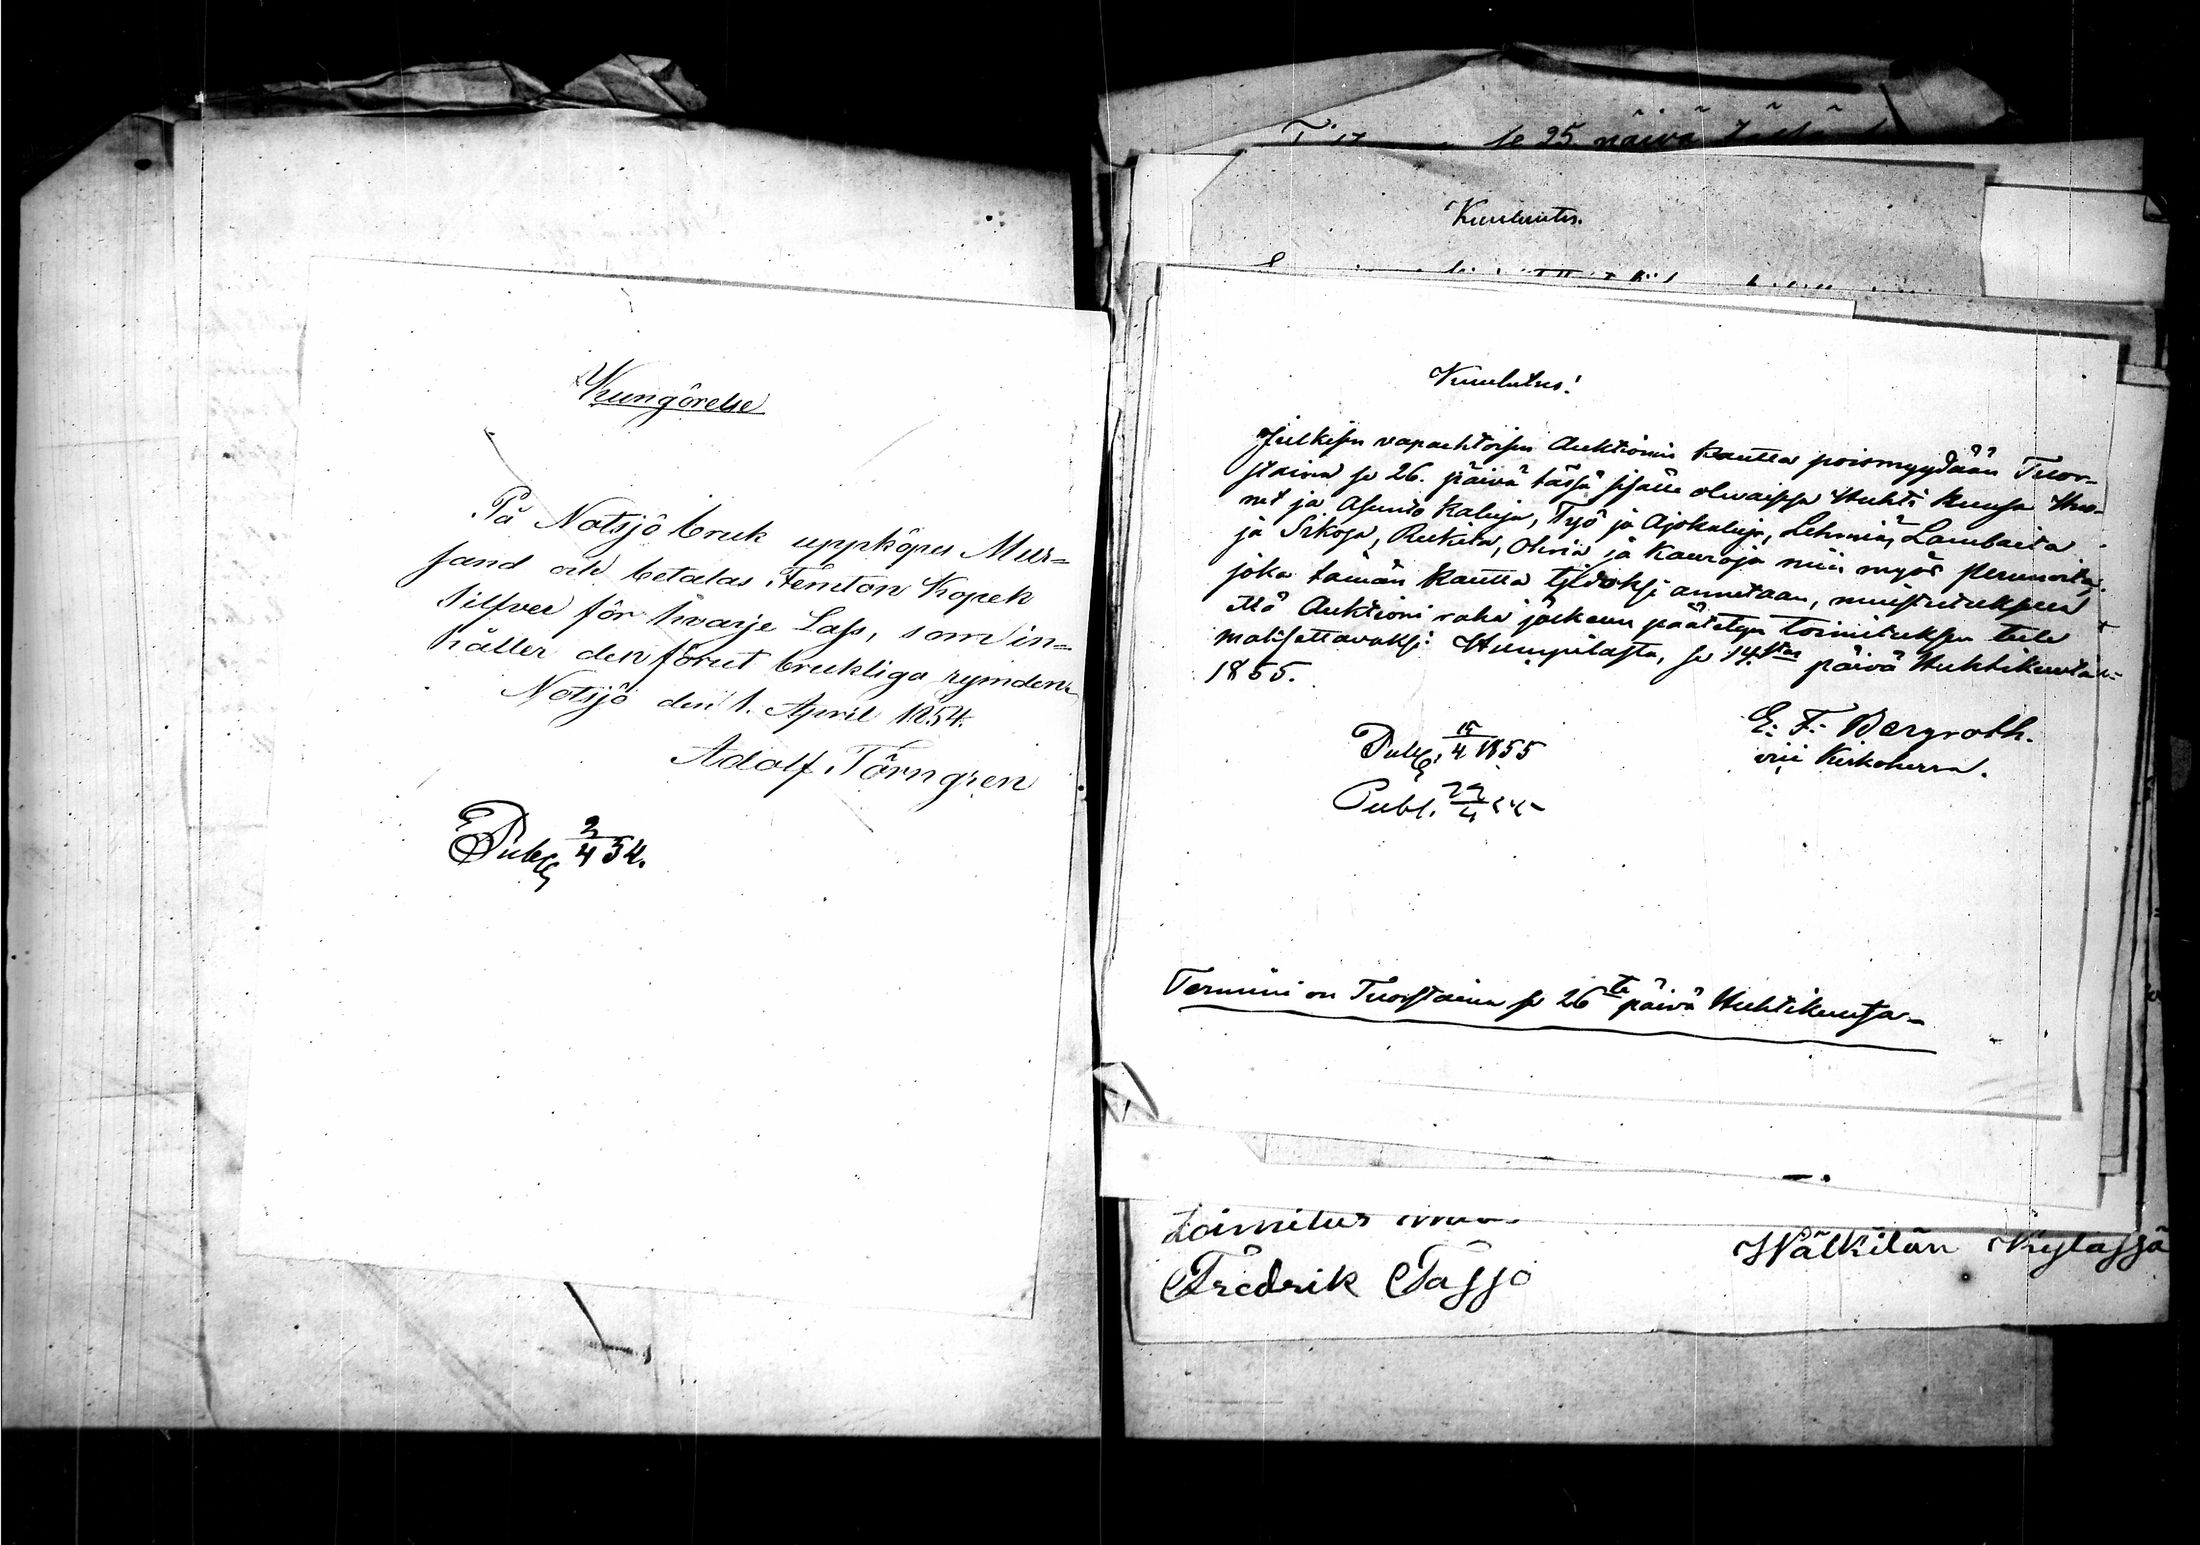 Kungörelse
På Notsjö bruk uppköpes Mur=
sand och betalas Femton Kopek
Silfver för hvarje Lass, som in=
håller den förut brukliga rymden
Notsjö den 1. April 1854.
Adolf Törngren
Publ. 2/4 54.
se 25 päivä
Kuulutus.
Kuulutus!
Julkisen vapaehtoisen Auktionin kautta poismyydään Tuor-
staina se 26. päivä tässä sisälle olevaissa Huhti kuussa Huo-
net ja Asunto Kaluja, Työ ja Ajokaluja, Lehmiä, Lambaita
ja Sikoja, Rukita, Olkia ja Kauroja niin myös Perunoita,
joka tämän kautta tiedoksi annetaan, muistutuksen
että Auktioni raha jälkeen päätetyn toimituksen tule
maksettavaksi. Humpilasta, se 14sta päivä Huhtikuuta
1855.
E. F. Bergroth.
viii Kirkoherra.
Publ. 15/4 1855
Publ. 22/4 55
Termini on Tuorstaina se 26te päivä Huhtikuusa
toimitus
Fredrik Tasso
Wälkilän Kylässä